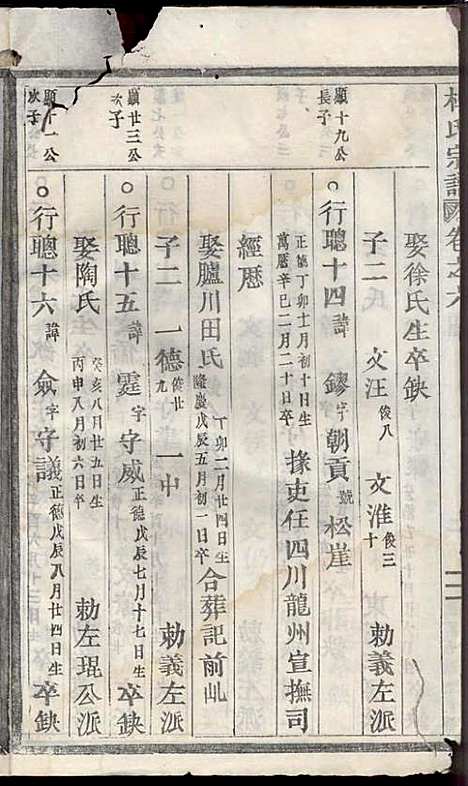 氏宗譜卷之六
娶徐氏生卒缺
子二氏 文汪俊八 文淮俊三十 勅義左派
顯十九公長子
行聰十四諱鏐字朝貢號松崖
正德丁卯十月初十日生
萬曆辛巳二月二十日卒
掾吏任四川龍州宣撫司
經歷
娶臚川田氏 丁卯二月廿四日生
隆慶戊辰五月初一日卒
合葬記前乢
子二 一德俊廿九 一中 勅義左派
顯廿三公次子
行聰十五諱霆字守威正德戊辰七月十七日生 卒缺
娶陶氏 癸亥八月廿五日生
丙申八月初六日卒
勅左琨公派
顯十一公次子
行聰十六諱僉字守議正德戊辰八月廿四日生 卒缺